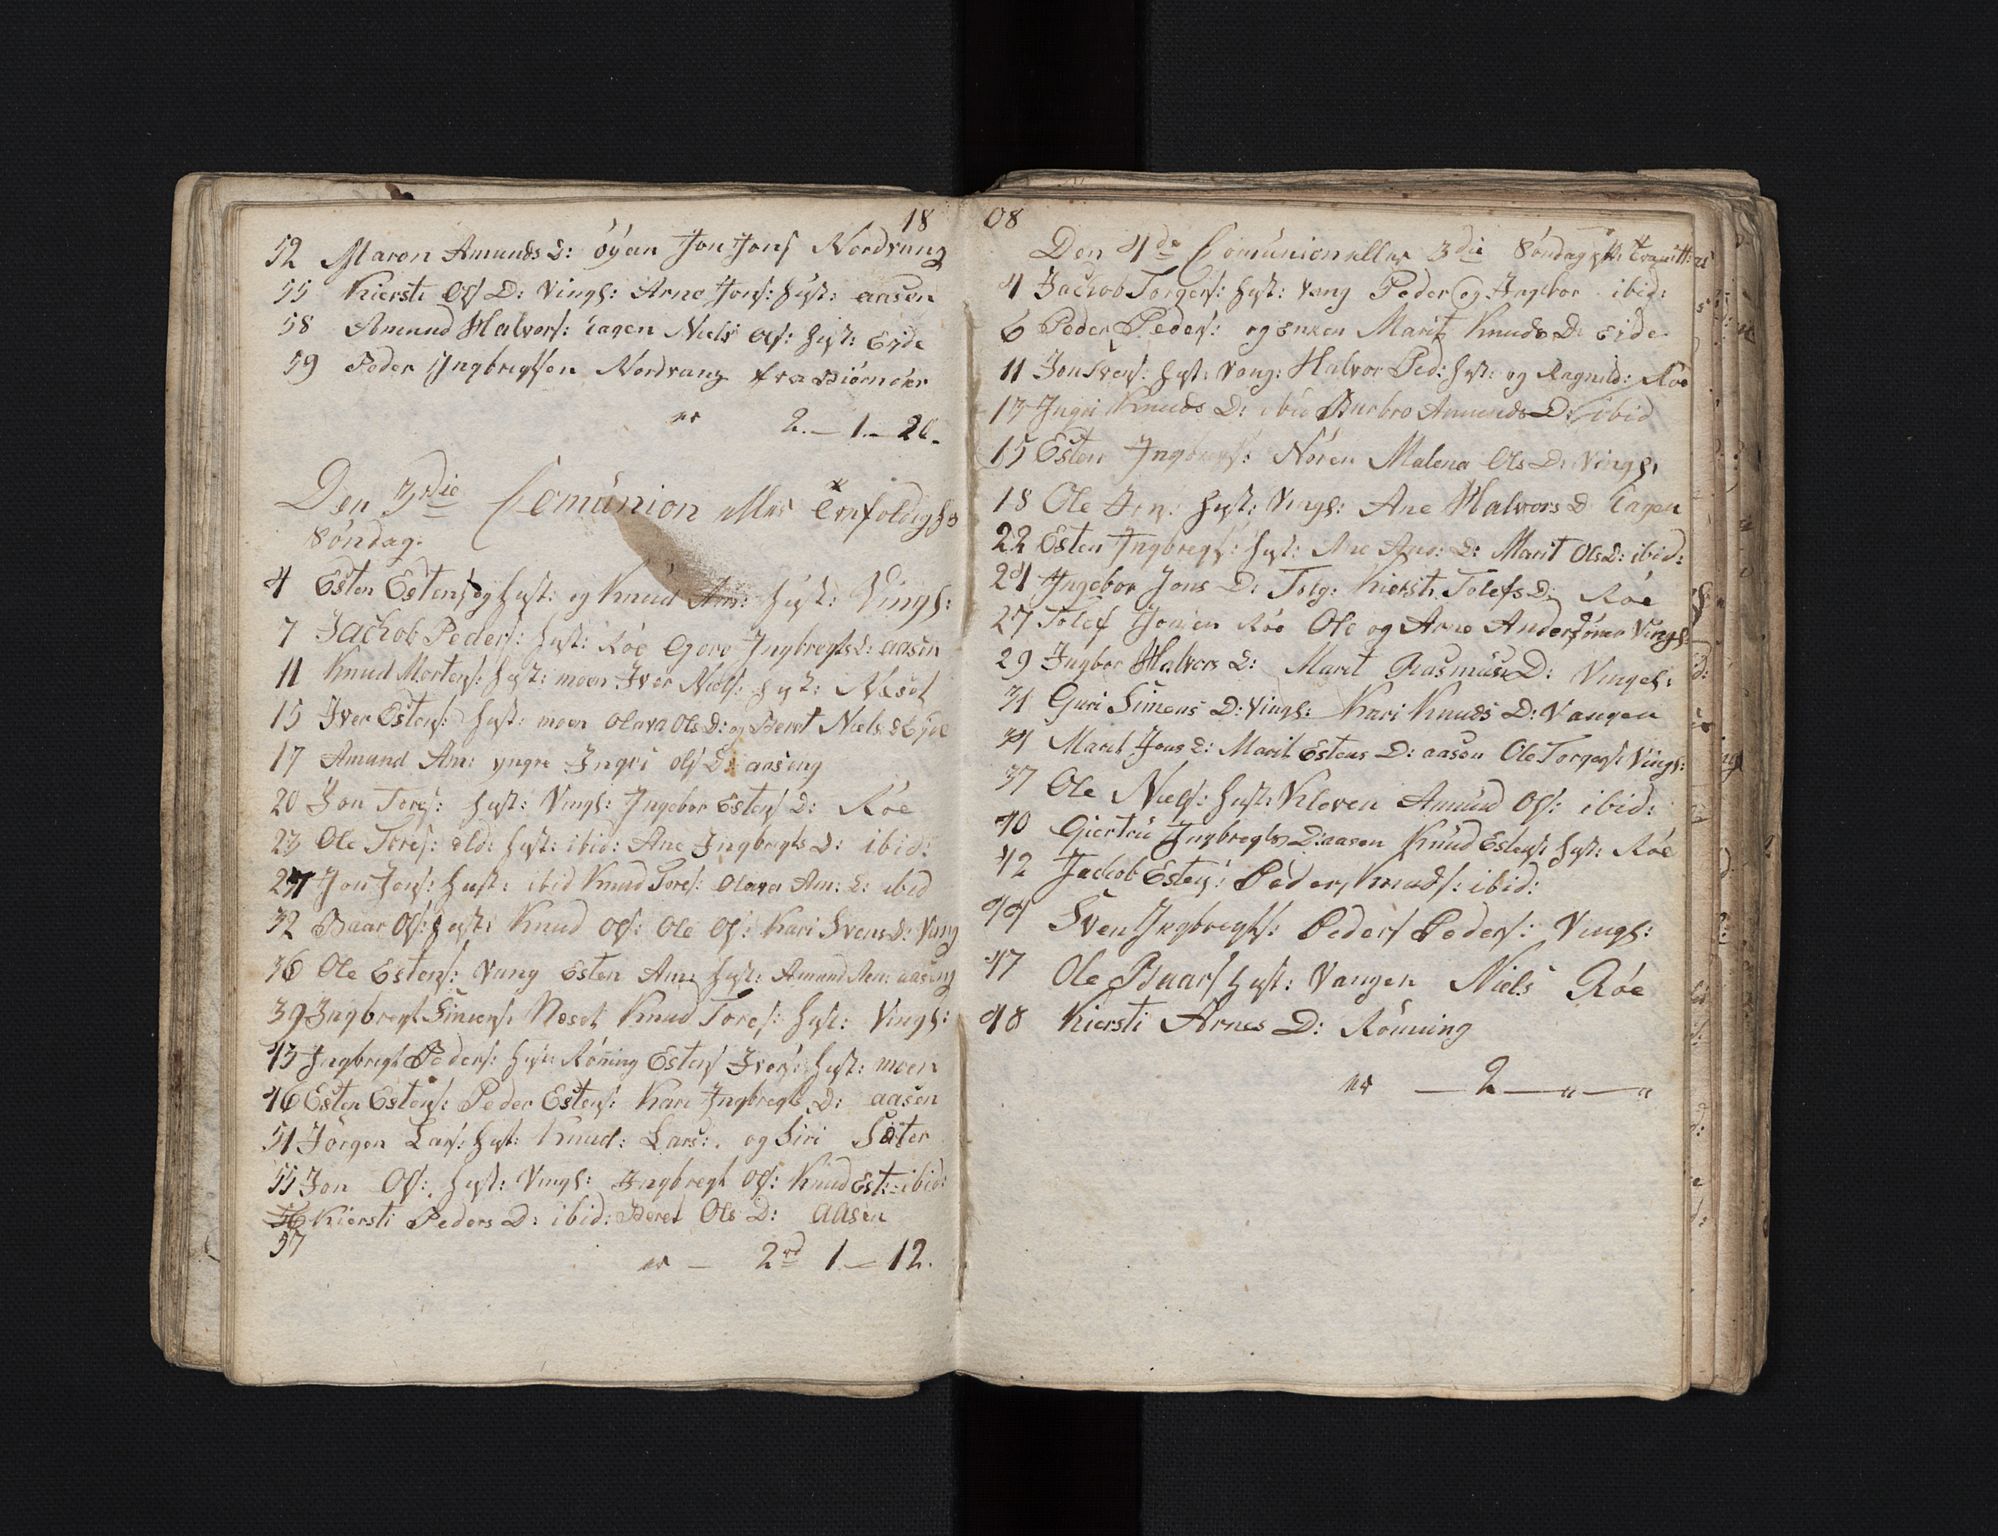 18
52 Maron Amunds D: öyan Jon Jons Nordvang
55 Kiersti Ols D: Vingl: Arne Jons: hust: aasen
58 Amund Halvors: Eagen Niels Ols: hust: Eide
59 Peder Ingbregtsen Nordvang fra Biörnöer
er 2. — 1. — 20.
Den 3die Comunion eller Trefoldigh:
Söndag.
4 Esten Estens og hust: og Knud Am: hust: Vingl:
7 Jachob Peders: hust: Röe Gore Ingbregts D: aasen
11 Knud Mortens: hust: moen Iver Niels: hust: Neset
15 Iver Estens: hust: moen Olava Ols D: og Beret Niels D Eyde
17 Amund Am: yngre Ingri Ols D: aaseng
20 Jon Tores: hust: Vingl: Ingebor Estens D: Röe
23 Ole Tores: eld: hust: ibid: Ane Ingbregts D: ibid:
27 Jon Jons: hust: ibid Knud Tores: Olava Am: D: ibid
32 Baar Ols: hust: Knud Ols: Ole Ols: Kari Svens D: Vang
36 Ole Estens: Vang Esten Am: hust: Amund Am: aaseng
39 Ingbregt Simens: Neset Knud Tores: hust: Vingl:
43 Ingbregt Peders: hust: Röning Estens Ivers: hust: moen
46 Esten Estens: Peder Estens: Kari Ingbregts D: aasen
51 Jörgen Lars: hust: Knud: Lars: og Siri Säter
55 Jon Ols: hust: Vingl: Ingbregt Ols: Knud Est: ibid:
56 Kiersti Peders D: ibid: Beret Ols D: aasen
57
er — 2rd 1 — 12.
08
Den 4de Comunion eller 3die Söndag
4 Jachob Torgers: hust: Vang Peder og Ingebor ibid:
6 Peder Peders: og Marit Knuds D: Eide
11 Jon Svens: hust: Vang: Halvor Ped: hust: og Ragnild: Röe
13 Ingri Knuds D: ibid Barbro Amunds D: ibid
15 Esten Ingbregts: Nören Malena Ols D: Vingl:
18 Ole Jens: hust: Vingl: Ane Halvors D Eagen
22 Esten Ingbregts: hust: Ane Ans: D: Marit Ols D: ibid:
24 Ingebor Jons D: Tolg: Kiersti Tolefs D: Röe
27 Tolef Jönsen Röe Ole og Arne Anders Vingl
29 Ingbor Halvors D: Marit Rasmus D: Vingel:
31 Guri Simens D: Vingl: Kari Knuds D: Vangen
34 Marit Jons D: Marit Estens D: aasen Ole Torgers: Vingl:
37 Ole Niels: hust: Kleven Amund Ols: ibid:
40 Giertru Ingbregts D: aasen Knud Estens: hust: Röe
42 Jachob Estens: Peders Knuds: ibid:
44 Sven Ingbregts: Peders Peders: Vingl:
47 Ole Baars hust: Vangen Niels Röe
48 Kiersti Arnes D: Rönning
er — 2 — " — "